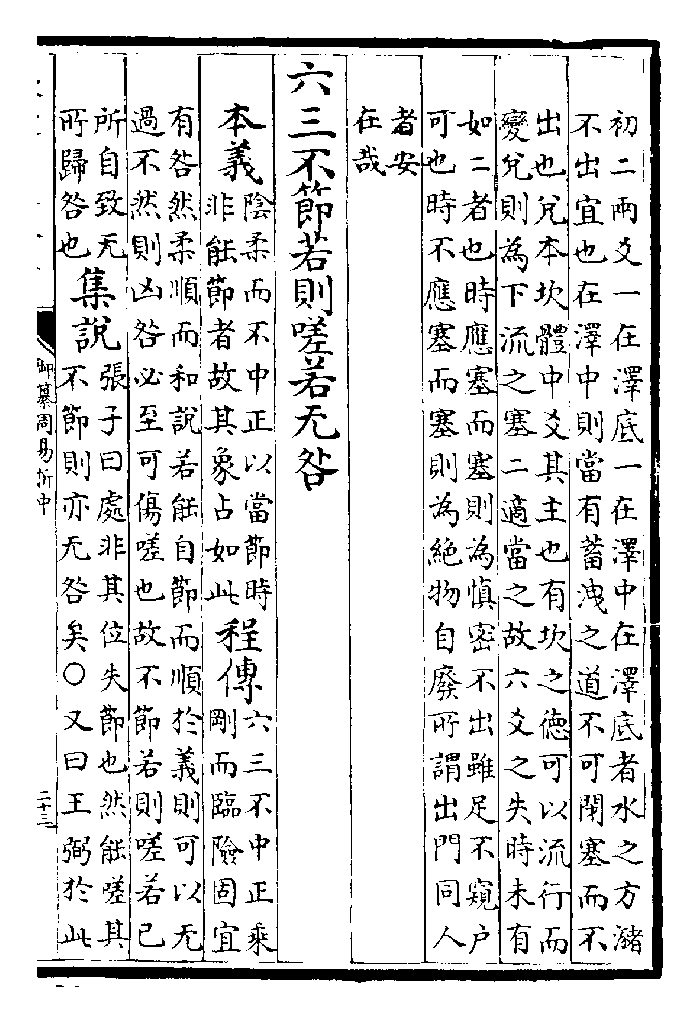 初二兩爻一在澤底一在澤中在澤底者水之方瀦
不出宜也在澤中則當有蓄洩之道不可閉塞而不
出也兌本坎體中爻其主也有坎之德可以流行而
變兌則為下流之塞二適當之故六爻之失時未有
如二者也時應塞而塞則為慎密不出雖足不窺户
可也時不應塞而塞則為絶物自廢所謂出門同人
者安
在哉
六三不節若則嗟若无咎
本義
陰柔而不中正以當節時
非能節者故其象占如此
程傳
六三不中正乘
剛而臨險固宜
有咎然柔順而和說若能自節而順於義則可以无
過不然則凶咎必至可傷嗟也故不節若則嗟若已
所自致无
所歸咎也
集說
張子曰處非其位失節也然能嗟其
不節則亦无咎矣○又曰王弼於此
御纂周易折中
二十三